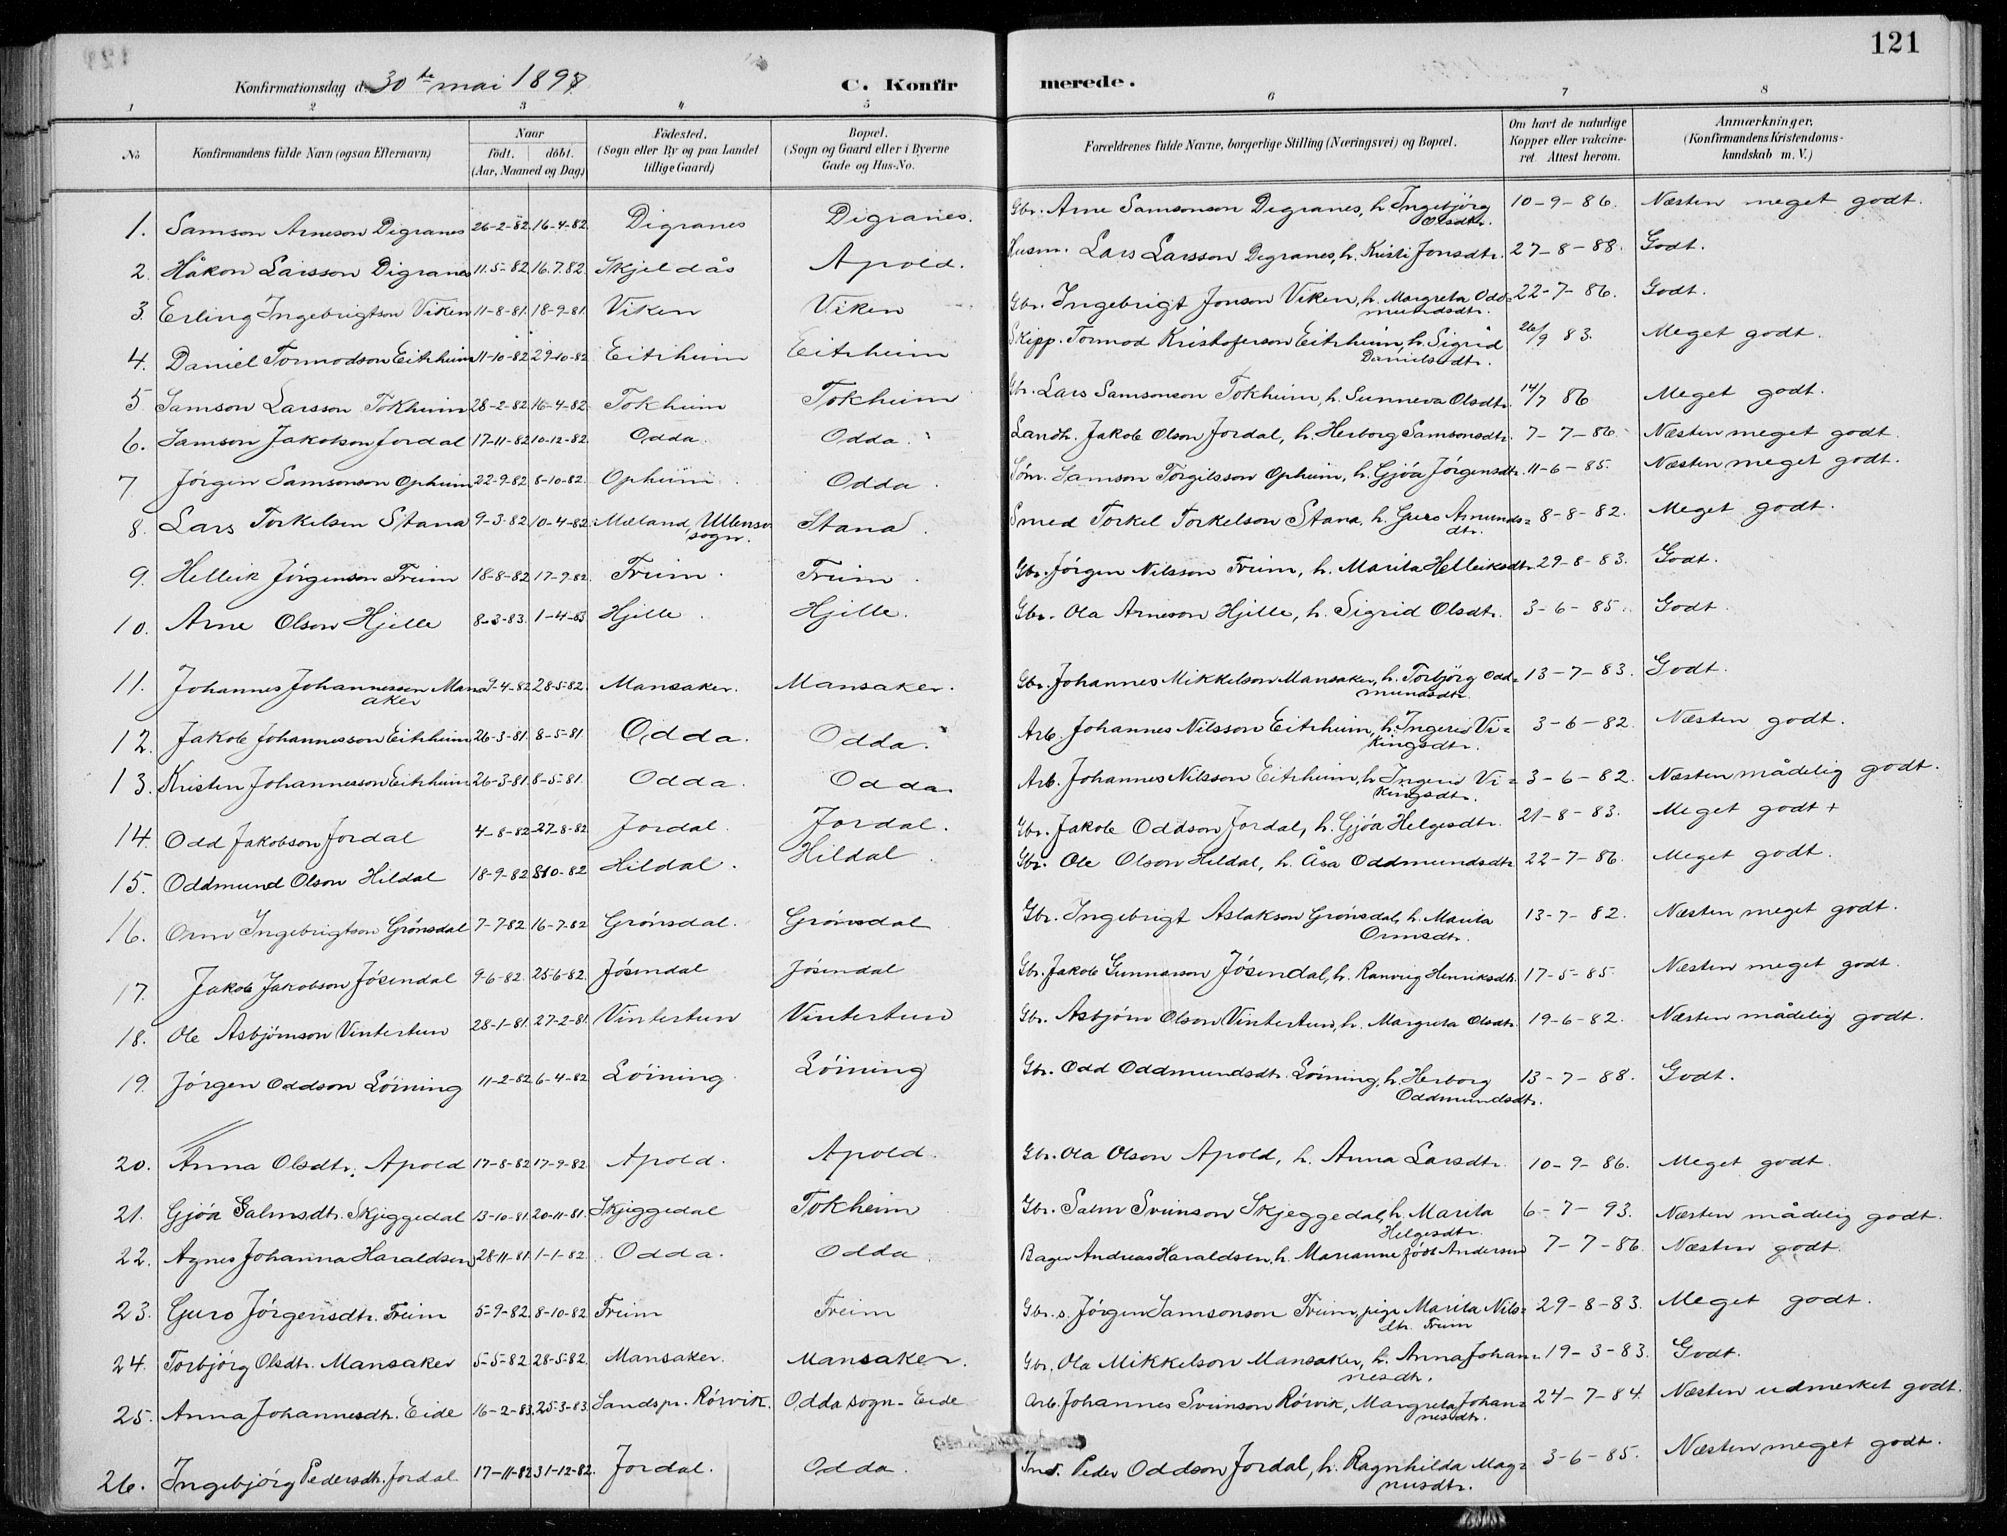 121
Konfirmationsdag d. 30te mai 1897
C. Konfirmerede.
1 2 3 4 5 6 7 8
No
Konfirmandens fulde Navn (ogsaa Efternavn)
Naar
födt. döbt.
(Aar, Maaned og Dag)
Födested.
(Sogn eller By og paa Landet
tillige Gaard)
Bopæl.
(Sogn og Gaard eller i Byerne
Gade og Hus-No.
Forældrenes fulde Navne, borgerlige Stilling (Næringsvei) og Bopæl.
Om havt de naturlige
Kopper eller vakcine-
ret. Attest herom.
Anmærkninger,
(Konfirmandens Kristendoms-
kundskab m. V.)
1. Samson Arneson Digranes 26-2-82 16-4-82 Digranes Digranes. Gbr. Arne Samsonson Degranes, h. Ingebjörg Olsdtr. 10-9-86. Næsten meget godt.
2. Håkon Larsson Digranes 11-5-82 16.7.82 Skjeldås Apold. Husm. Lars Larsson Degranes, h. Kristi Jonsdtr. 27-8-88. Godt.
3. Erling Ingebrigtson Viken 11-8-81. 18-9-81. Viken Viken Gbr. Ingebrigt Jonson Viken, h. Margreta Odd=
mundsdtr. 22-7-86. Godt.
4. Daniel Tormodson Eitrheim 11-10-82 29-10-82 Eitrheim Eitrheim Skipp. Tormod Kristoferson Eitrheim, h. Sigrid
Danielsdtr. 26/9 83. Meget godt.
5 Samson Larsson Tokheim 28-2-82 16-4-82 Tokheim Tokheim Gbr. Lars Samsonson Tokheim, h. Sunneva Olsdtr. 14/7 86 Meget godt.
6. Samson Jakobson Jordal 17-11-82 10-12-82. Odda. Odda. Landh. Jakob Olson Jordal, h. Herborg Samsonsdtr. 7-7-86. Næsten meget godt.
7 Jörgen Samsonson Opheim 22-9-82 8-10-82. Opheim Odda. Samson Torgilsson Opheim, h. Gjöa Jörgensdtr. 11-6-85. Næsten meget godt.
8. Lars Torkelsen Stana 9-3-82 10-4-82. Mæland, Ullensv.
sogn. Stana. Smed Torkel Torkelson Stana, h. Guro Asmunds=
dtr. 8-8-82. Meget godt.
9. Helleik Jörgenson Freim 18-8-82 17-9-82. Freim. Freim. Gbr. Jörgen Nilsson Freim, h. Marita Helleiksdtr. 29-8-83. Godt.
10. Arne Olson Hjelle 8-3-83. 1-4-83 Hjelle. Hjelle. Gbr. Ola Arneson Hjelle, h. Sigrid Olsdtr. 3-6-85. Godt
11. Johannes Johannessen Mans
aker 9-4-82 28-5-82. Mansaker. Mansaker. Gbr. Johannes Mikkelson Mansaker, h. Torbjörg Odd=
mundsdtr. 13-7-83. Godt.
12. Jakob Johannesson Eitrheim 26-3-81. 8-5-81 Odda. Odda. Arb. Johannes Nilsson Eitrheim, h. Ingerid Vi=
kingsdtr. 3-6-82. Næsten godt.
13. Kristen Johannesson Eitrheim 26-3-81. 8-5-81. Odda. Odda. Arb. Johannes Nilsson Eitrheim, h. Ingerid Vi=
kingsdtr. 3-6-82. Næsten mådelig godt.
14. Odd Jakobson Jordal 4-8-82 27-8-82 Jordal. Jordal. Gbr. Jakob Oddson Jordal, h. Gjöa Helgesdtr. 21-8-83. Meget godt +
15. Oddmund Olson Hildal 18-9-82 8-10-82 Hildal. Hildal. Gbr. Ole Olson Hildal, h. Åsa Oddmundsdtr. 22-7-86. Meget godt.
16. Orm Ingebrigtson Grönsdal 7-7-82 16-7-82 Grönsdal. Grönsdal Gbr. Ingebrigt Aslakson Grönsdal, h. Marita
Ormsdtr. 13-7-82. Næsten meget godt.
17. Jakob Jakobson Jösendal 9-6-82. 25-6-82. Jösendal Jösendal Gbr. Jakob Gunnarson Jösendal, h. Ranveig Henriksdtr. 17-5-85. Næsten meget godt.
18. Ole Asbjörnson Vintertun 28-1-81. 27-2-81. Vintertun Vintertun Gbr. Asbjörn Olson Vintertun, h. Margreta Olsdtr. 19-6-82. Næsten mådelig godt.
19. Jörgen Oddson Löining 11-2-82 6-4-82. Löining. Löining Gbr. Odd Oddmundsdtr. Löining, h. Herborg
Oddmundsdtr. 13-7-88. Godt.
20. Anna Olsdtr. Apold 17-8-82 17-9-82. Apold. Apold. Gbr. Ola Olson Apold, h. Anna Larsdtr. 10-9-86. Meget godt.
21. Gjöa Salmsdtr. Skjeggedal 13-10-81. 20-11-81. Skjeggedal Tokheim Gbr. Salm Sveinson Skjeggedal, h. Marita
Helgesdtr. 6-7-93. Næsten mådelig godt.
22. Agnes Johanna Haraldsen 28-11-81. 1-1-82. Odda. Odda Bager Andreas Haraldsen, h. Marianne född Andersen 7-7-86. Næsten godt.
23. Guro Jörgensdtr. Freim 5-9-82. 8-10-82. Freim Freim Gbr. s. Jörgen Samsonson Freim, pige Marita Nils=
dtr. Freim 29-8-83. Meget godt.
24. Torbjörg Olsdtr. Mansaker 5-5-82 28-5-82. Mansaker. Mansaker. Gbr. Ola Mikkelson Mansaker, h. Anna Johan=
nesdtr. 19-3-83. Godt.
25. Anna Johannesdtr. Eide 16-2-83. 25-3-83. Sandspr. Rörvik. Odda sogn - Eide Arb. Johannes Sveinson Rörvik, Margreta Johan=
nesdtr. 24-7-84. Næsten udmerket godt.
26. Ingebjörg Pedersdtr. Jordal 17-11-82 31-12-82. Jordal. Odda. Ind. Peder Oddson Jordal, h. Ragnhilda Mag=
nusdtr. 3-6-85. Næsten meget godt.